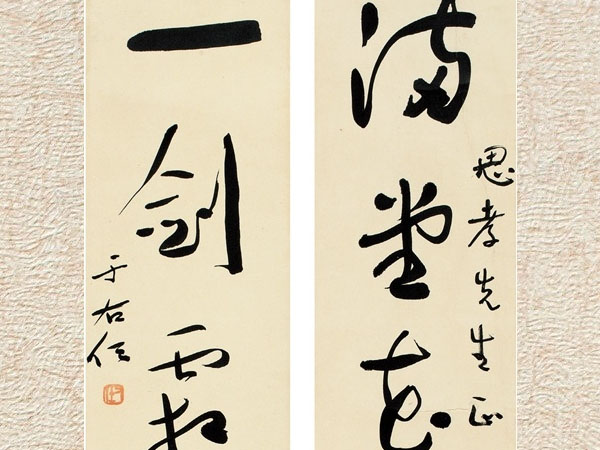 思孝先生正
滿堂花
一劍霜
于右任